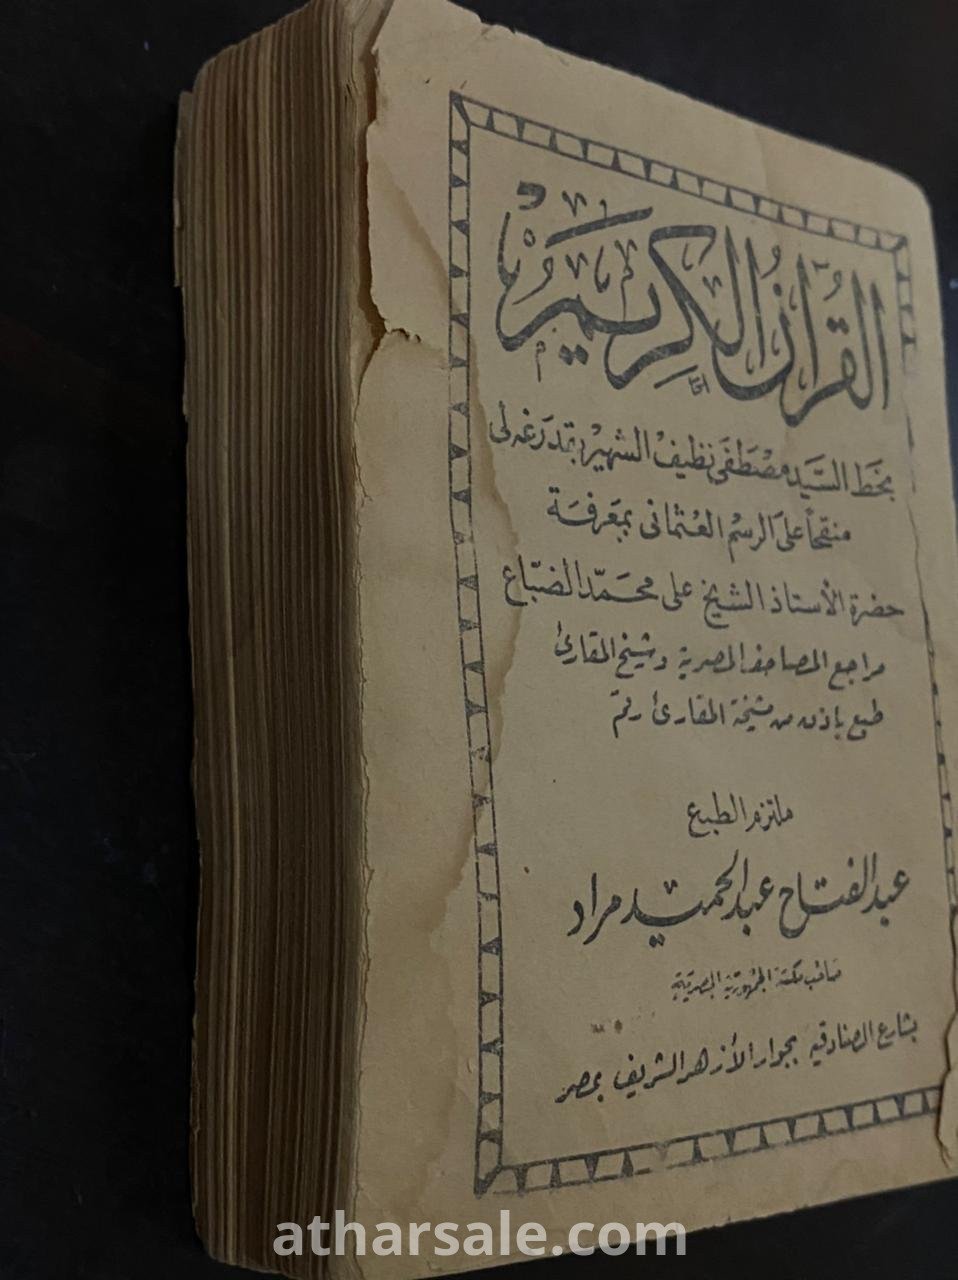 القُرآنُ الكَرِيمُ
بخَط السَّيد مصْطَفَى نظيفْ الشهيرْ بقدرغه لى
منقحاً على الرسْم العُثمانى بمَعرفَة
حضرة الأستاذ الشيخ على محمَّد الضبّاع
مراجع المصاحف المصرية وشيخ المقارئ
طبع بإذن من مشيخة المقارئ رقم
ملتزم الطبع
عبد الفتاح عبد الحميد مراد
صَاحب مكتبة الجمهوريّة المصريّة
بشارع الصنادقيه بجوار الأزهر الشريف بمصر
atharsale.com